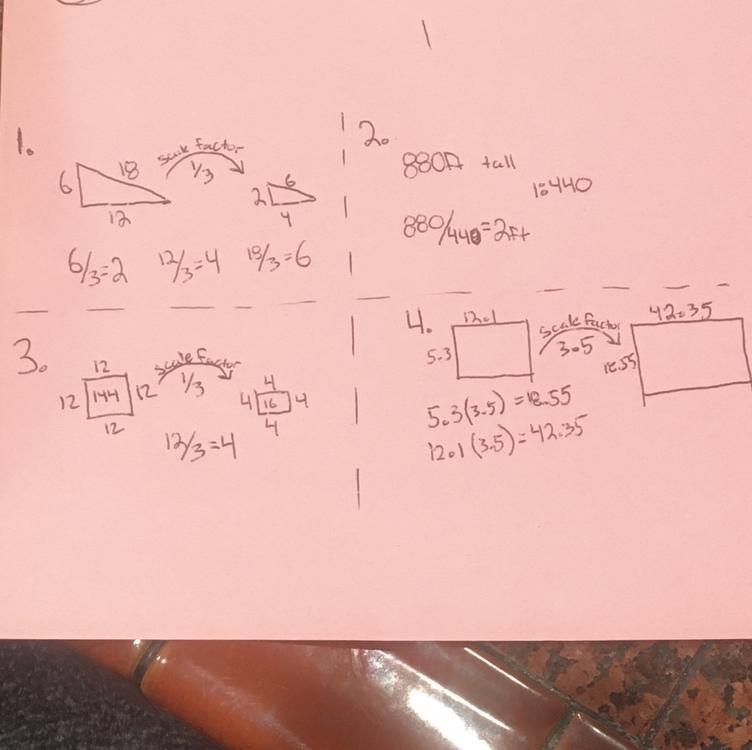 1.
scale factor
1/3
6
18
12
2
6
4
6/3=2 12/3=4 18/3=6
2.
880ft tall
1:440
880/440=2ft
3.
12
12
144
12
12
scale factor
1/3
4
4
16
4
4
12/3=4
4.
12.1
5.3
scale factor
3.5
42.35
18.55
5.3(3.5)=18.55
12.1(3.5)=42.35